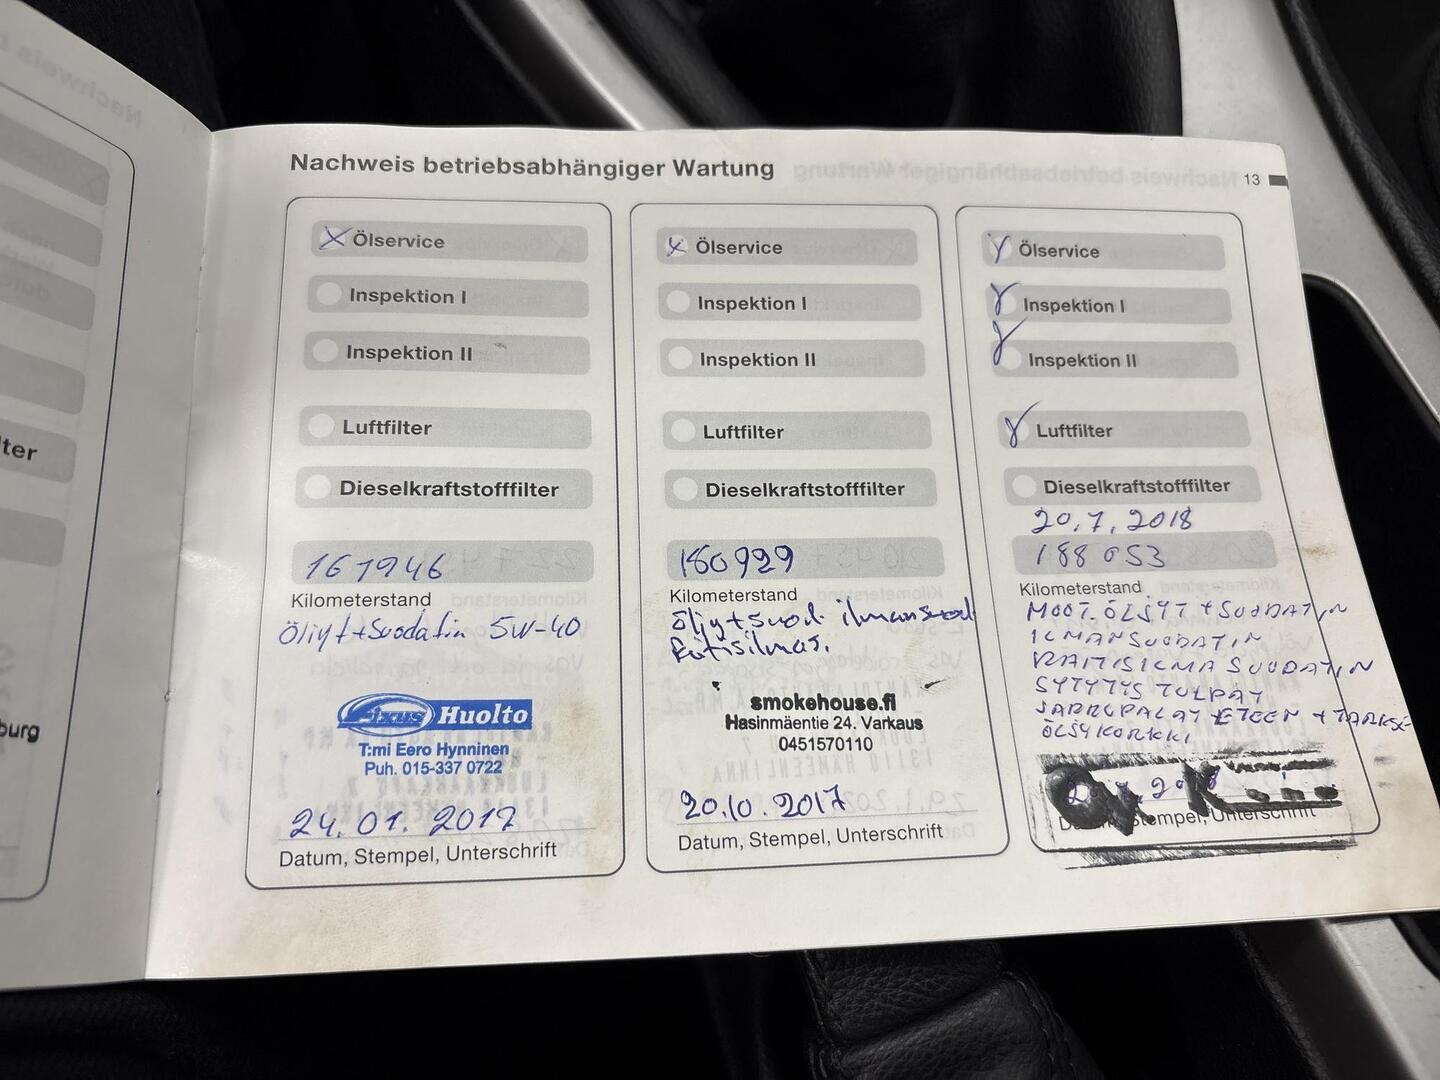 Nachweis betriebsabhängiger Wartung
13
Ölservice
Inspektion I
Inspektion II
Luftfilter
Dieselkraftstofffilter
161946
Kilometerstand
Öljyt+Suodatin 5W-40
Fixus Huolto
T:mi Eero Hynninen
Puh. 015-337 0722
24.01.2017
Datum, Stempel, Unterschrift
Ölservice
Inspektion I
Inspektion II
Luftfilter
Dieselkraftstofffilter
180929
Kilometerstand
Öljyt+suod. ilmansuod.
Raitisilmas.
smokehouse.fi
Hasinmäentie 24. Varkaus
0451570110
20.10.2017
Datum, Stempel, Unterschrift
Ölservice
Inspektion I
Inspektion II
Luftfilter
Dieselkraftstofffilter
20.7.2018
188053
Kilometerstand
MOOT.ÖLJYT + SUODATIN
ILMANSUODATIN
RAITISILMA SUODATIN
SYTYTYSTULPAT
JARRUPALAT ETEEN + TAAKSE
ÖLJYKORKKI
Stempel, Unterschrift
ter
burg